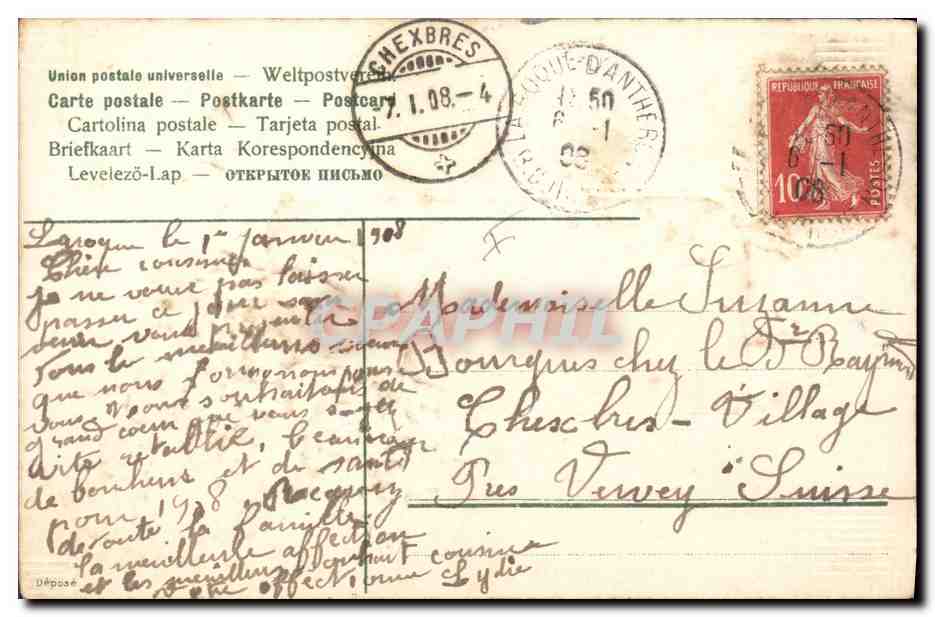 Union postale universelle — Weltpostverein
Carte postale — Postkarte — Postcard
Cartolina postale — Tarjeta postal
Briefkaart — Karta Korespondencyjna
Levelező-Lap — ОТКРЫТОЕ ПИСЬМО
CHEXBRES
7. I. 08. - 4
LA ROQUE-D'ANTHERON
50
-1
08
REPUBLIQUE FRANÇAISE
10
POSTES
50
6 -1
08
Laroque le 1er Janvier 1908
Chère cousine
je ne veux pas laisser
passer ce jour sans
venir vous présenter
tous les meilleurs vœux
que nous formons pour
vous nous souhaitons de
grand cœur que vous soyez
vite rétablie, beaucoup
de bonheur et de santé
pour 1908 Recevez
de toute la famille
la meilleure affection
et les meilleurs cousine
votre affectionnée Lydie
Mademoiselle Suzanne
Pourques chez le Dr Raymond
Chexbres - Village
Près Vevey Suisse
CPAPHIL
Déposé